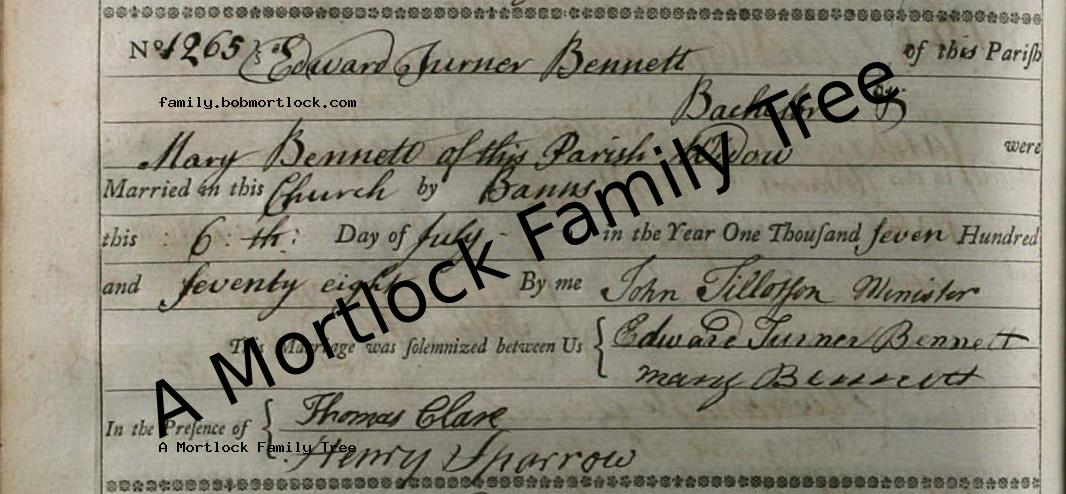 No 1265 Edward Turner Bennett of this Pariſh
family.bobmortlock.com
Bachelor &
Mary Bennett of this Parish Widow were
Married in this Church by Banns
this 6th Day of July in the Year One Thouſand ſeven Hundred
and ſeventy eight By me John Tillotſon Minister
This Marriage was ſolemnized between Us Edward Turner Bennett
Mary Bennett
In the Preſence of Thomas Clare
Henry Sparrow
A Mortlock Family Tree
A Mortlock Family Tree